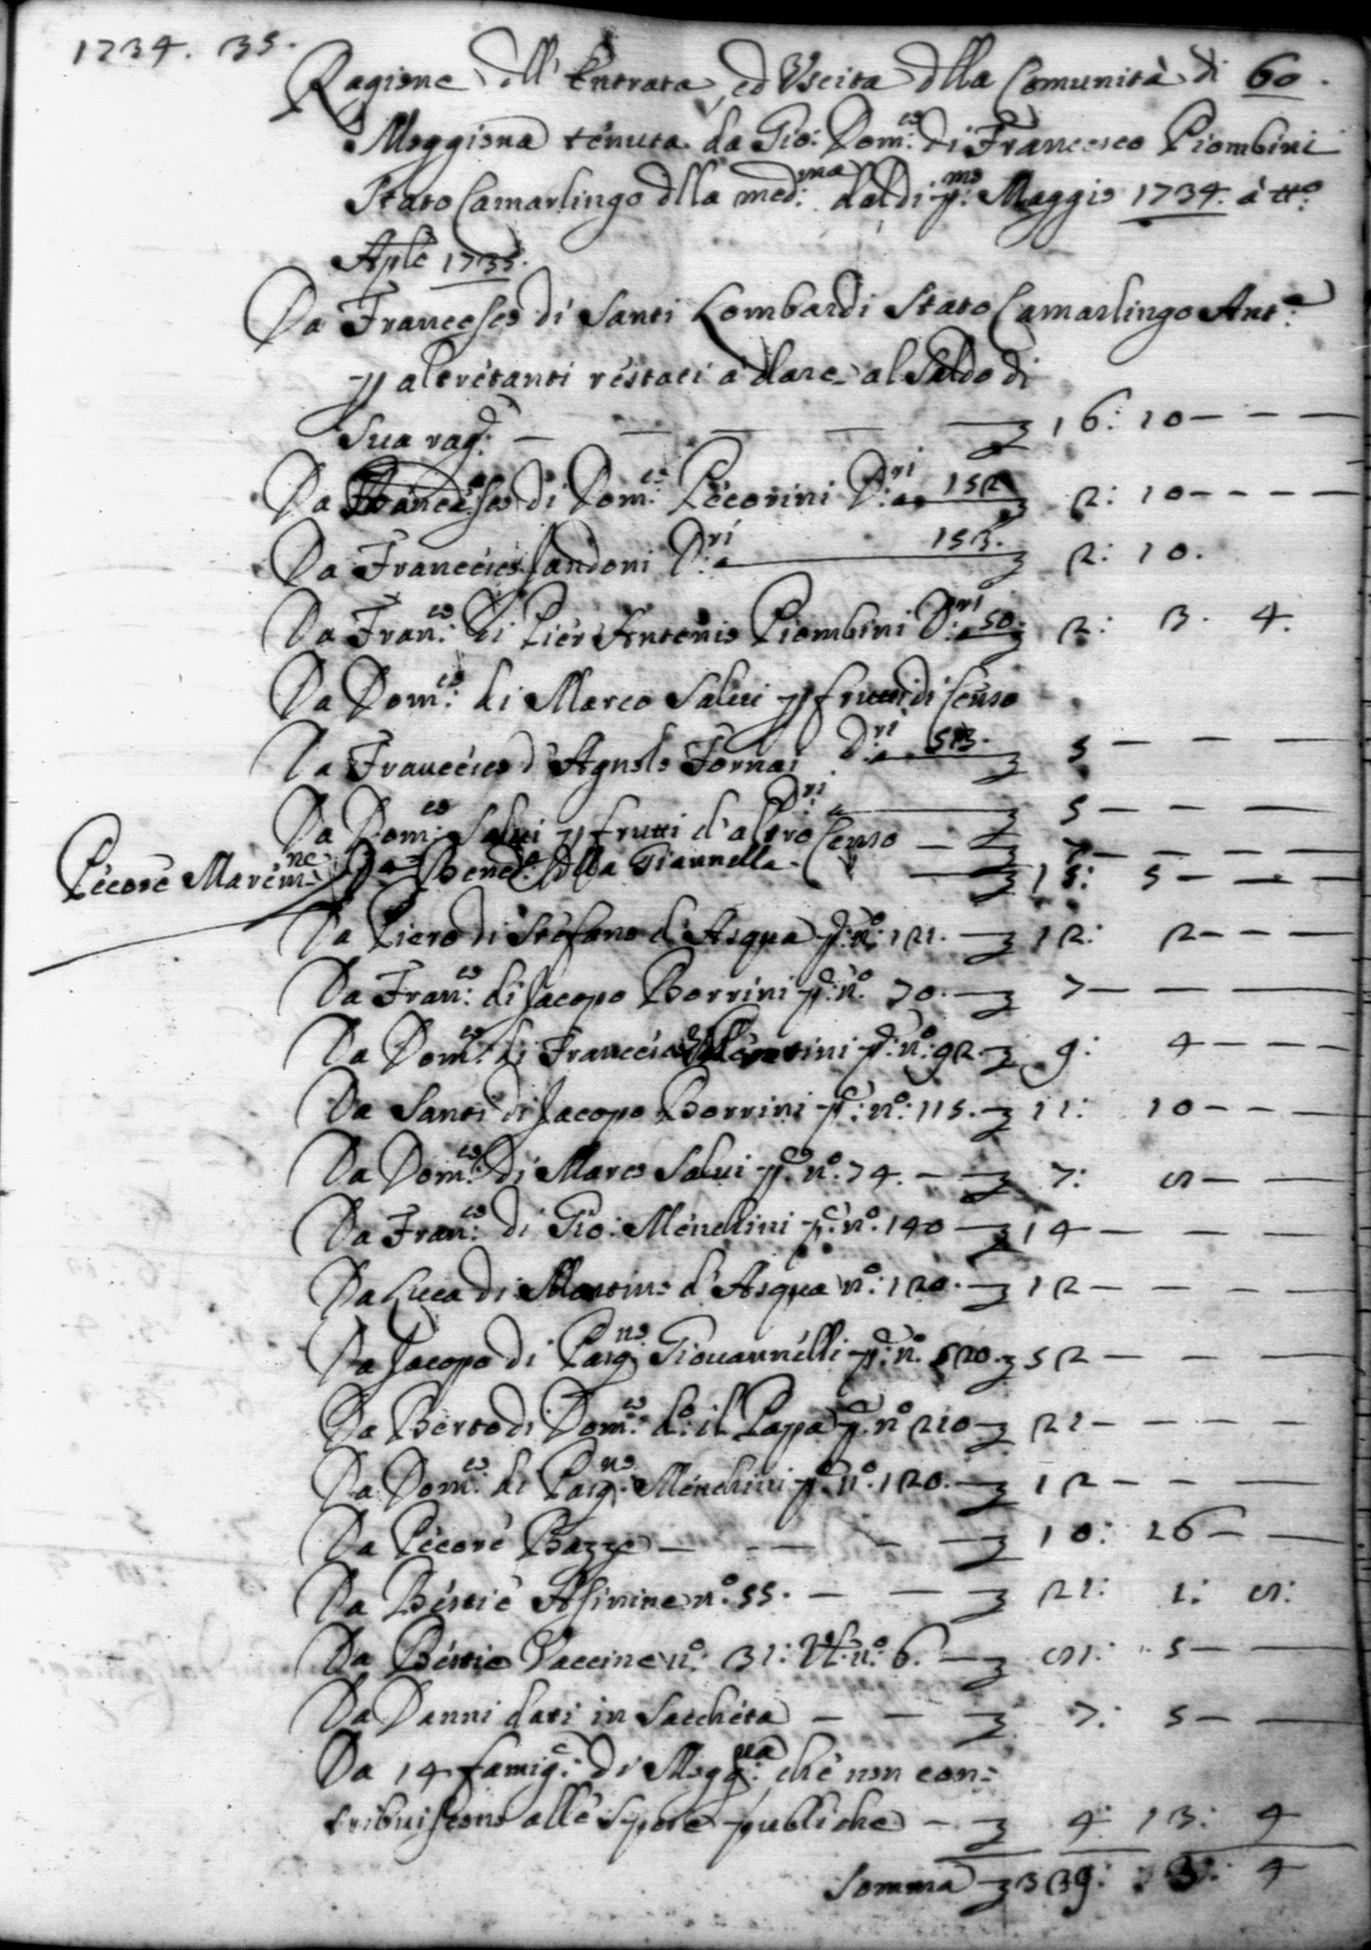 1734. 35.
Ragione dll' Entrata, ed Uscita dlla Comunità di 60.
Moggiona tenuta da Gio: Dom:co di Francesco Piombini
Stato Camarlingo dlla med:ma dal di p:mo Maggio 1734. à tt:o
Aple 1735.
Da Francesco di Santi Lombardi Stato Camarlingo Ant:e
p altretanti restati à dare al Saldo di
Sua rag: — — — — — 16: 10 — — —
Da Francesco di Dom:co Pecorini D:ri a 152 2: 10 — — —
Da Francesco Sandoni D:ri a 153. 2: 10.
Da Fran:co di Pier Antonio Piombini D:ri a 50. 2: 3. 4.
Da Dom:co di Marco Salvi p frutti di Censo
D:ri a 5 — — —
Da Francesco d'Agnolo Fornai
D:ri a 5 — — —
Da Dom:co Salvi p frutti d'altro Censo — 7 — — —
Pecore Marem:ne Da Bened:o dlla Giannella — 15: 5 — — —
Da Piero di Stefano d'Asqua p: n:o 121. — 12: 2 — — —
Da Fran:co di Jacopo Borrini p: n:o 70. — 7 — — —
Da Dom:co di Francesco p: n:o: 92. 9: 4 — — —
Da Santi di Jacopo Borrini p: n:o: 115. 11: 10 — — —
Da Dom:co di Marco Salvi p: n:o: 74. — — 7: 8 — —
Da Fran:co di Gio: Menchini p: n:o: 140 — 14 — — —
Da Luca di Martino d'Asqua n:o: 120. — 12 — — —
Da Jacopo di Pasq:no Giovannelli p: n:o 520. 52 — — —
Da Berto di Dom:co d:o il Papa p: n:o 210 — 21 — — —
Da Dom:co di Pasq:no Menchini p: n:o: 120. — 12 — — —
Da Pecore Bazze — — — — 10: 16 — —
Da Bestie Asinine n:o 55. — — 21: 1: 8:
Da Bestie Vaccine n:o: 31: Vt. n:o: 6. — 81: 5 — —
Da Danni dati in Saccheta — — — 7: 5 — —
Da 14 famig:e di Mogg:na che non con=
tribuiscono alle spese publiche — 4: 13: 4
Somma 339: 3: 4